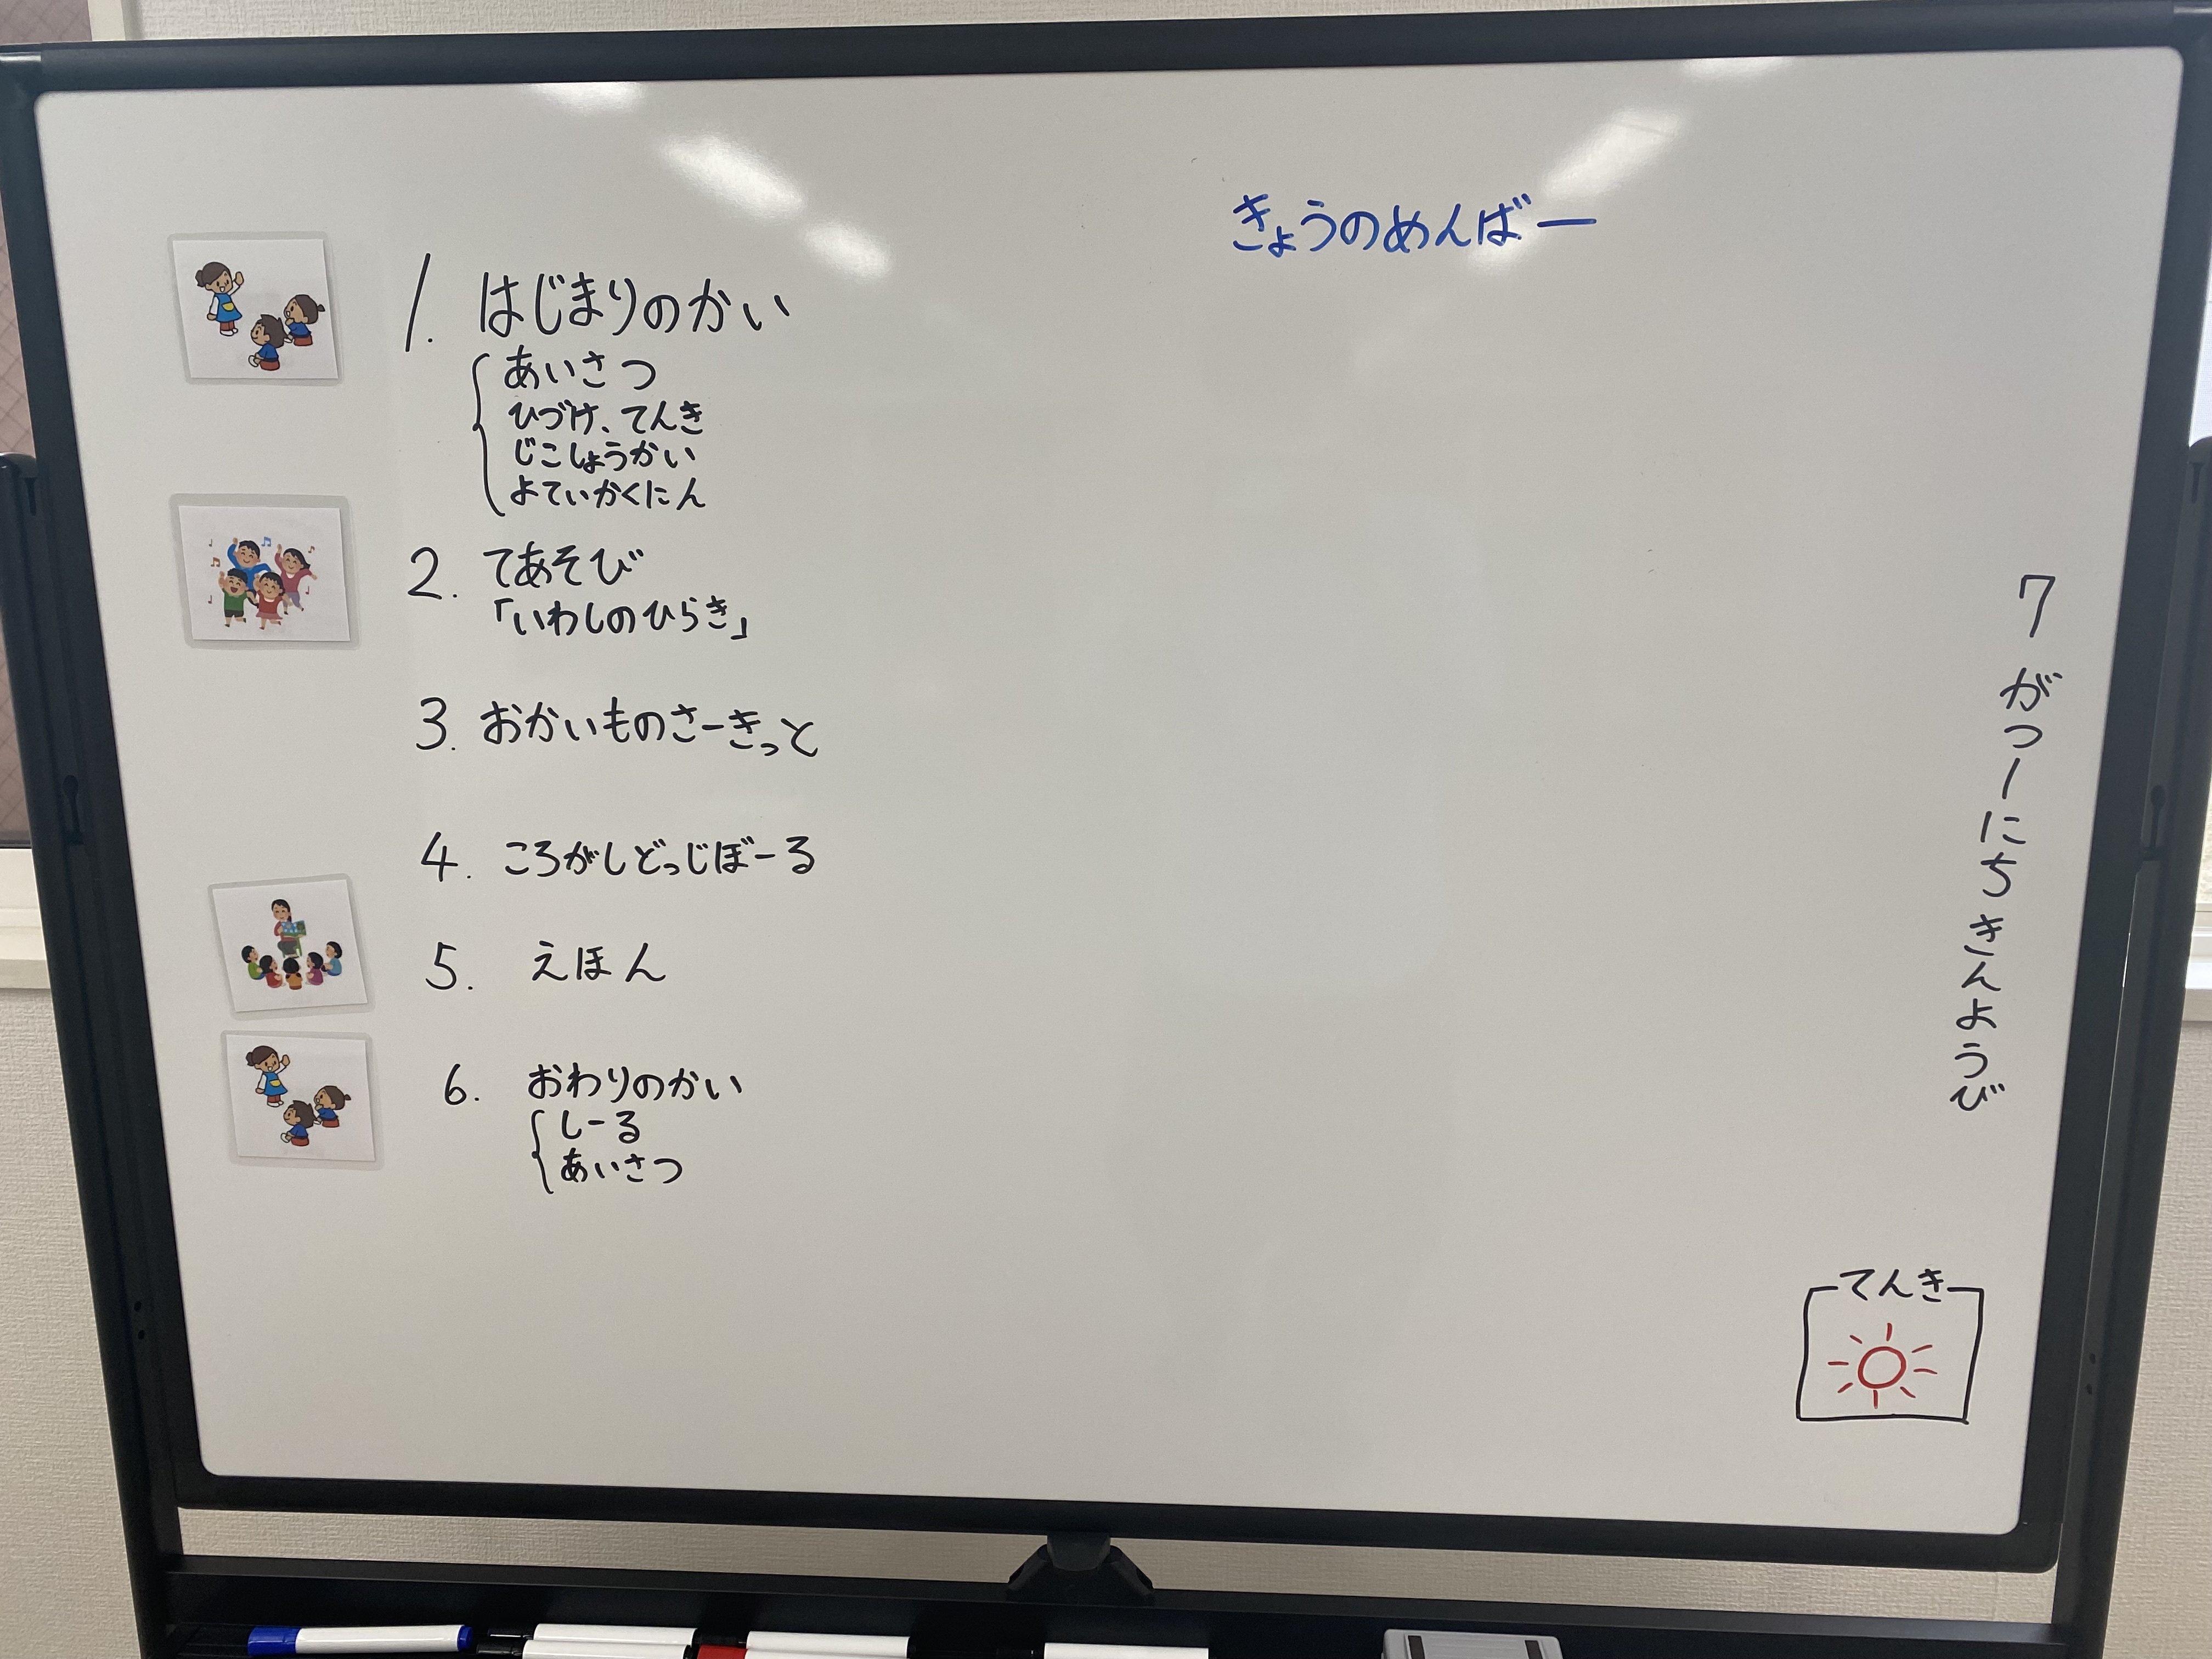 きょうのめんばー
1. はじまりのかい
あいさつ
ひづけ、てんき
じこしょうかい
よていかくにん
2. てあそび
「いわしのひらき」
3. おかいものさーきっと
4. ころがしどっじぼーる
5. えほん
6. おわりのかい
しーる
あいさつ
7がつ1にちきんようび
てんき